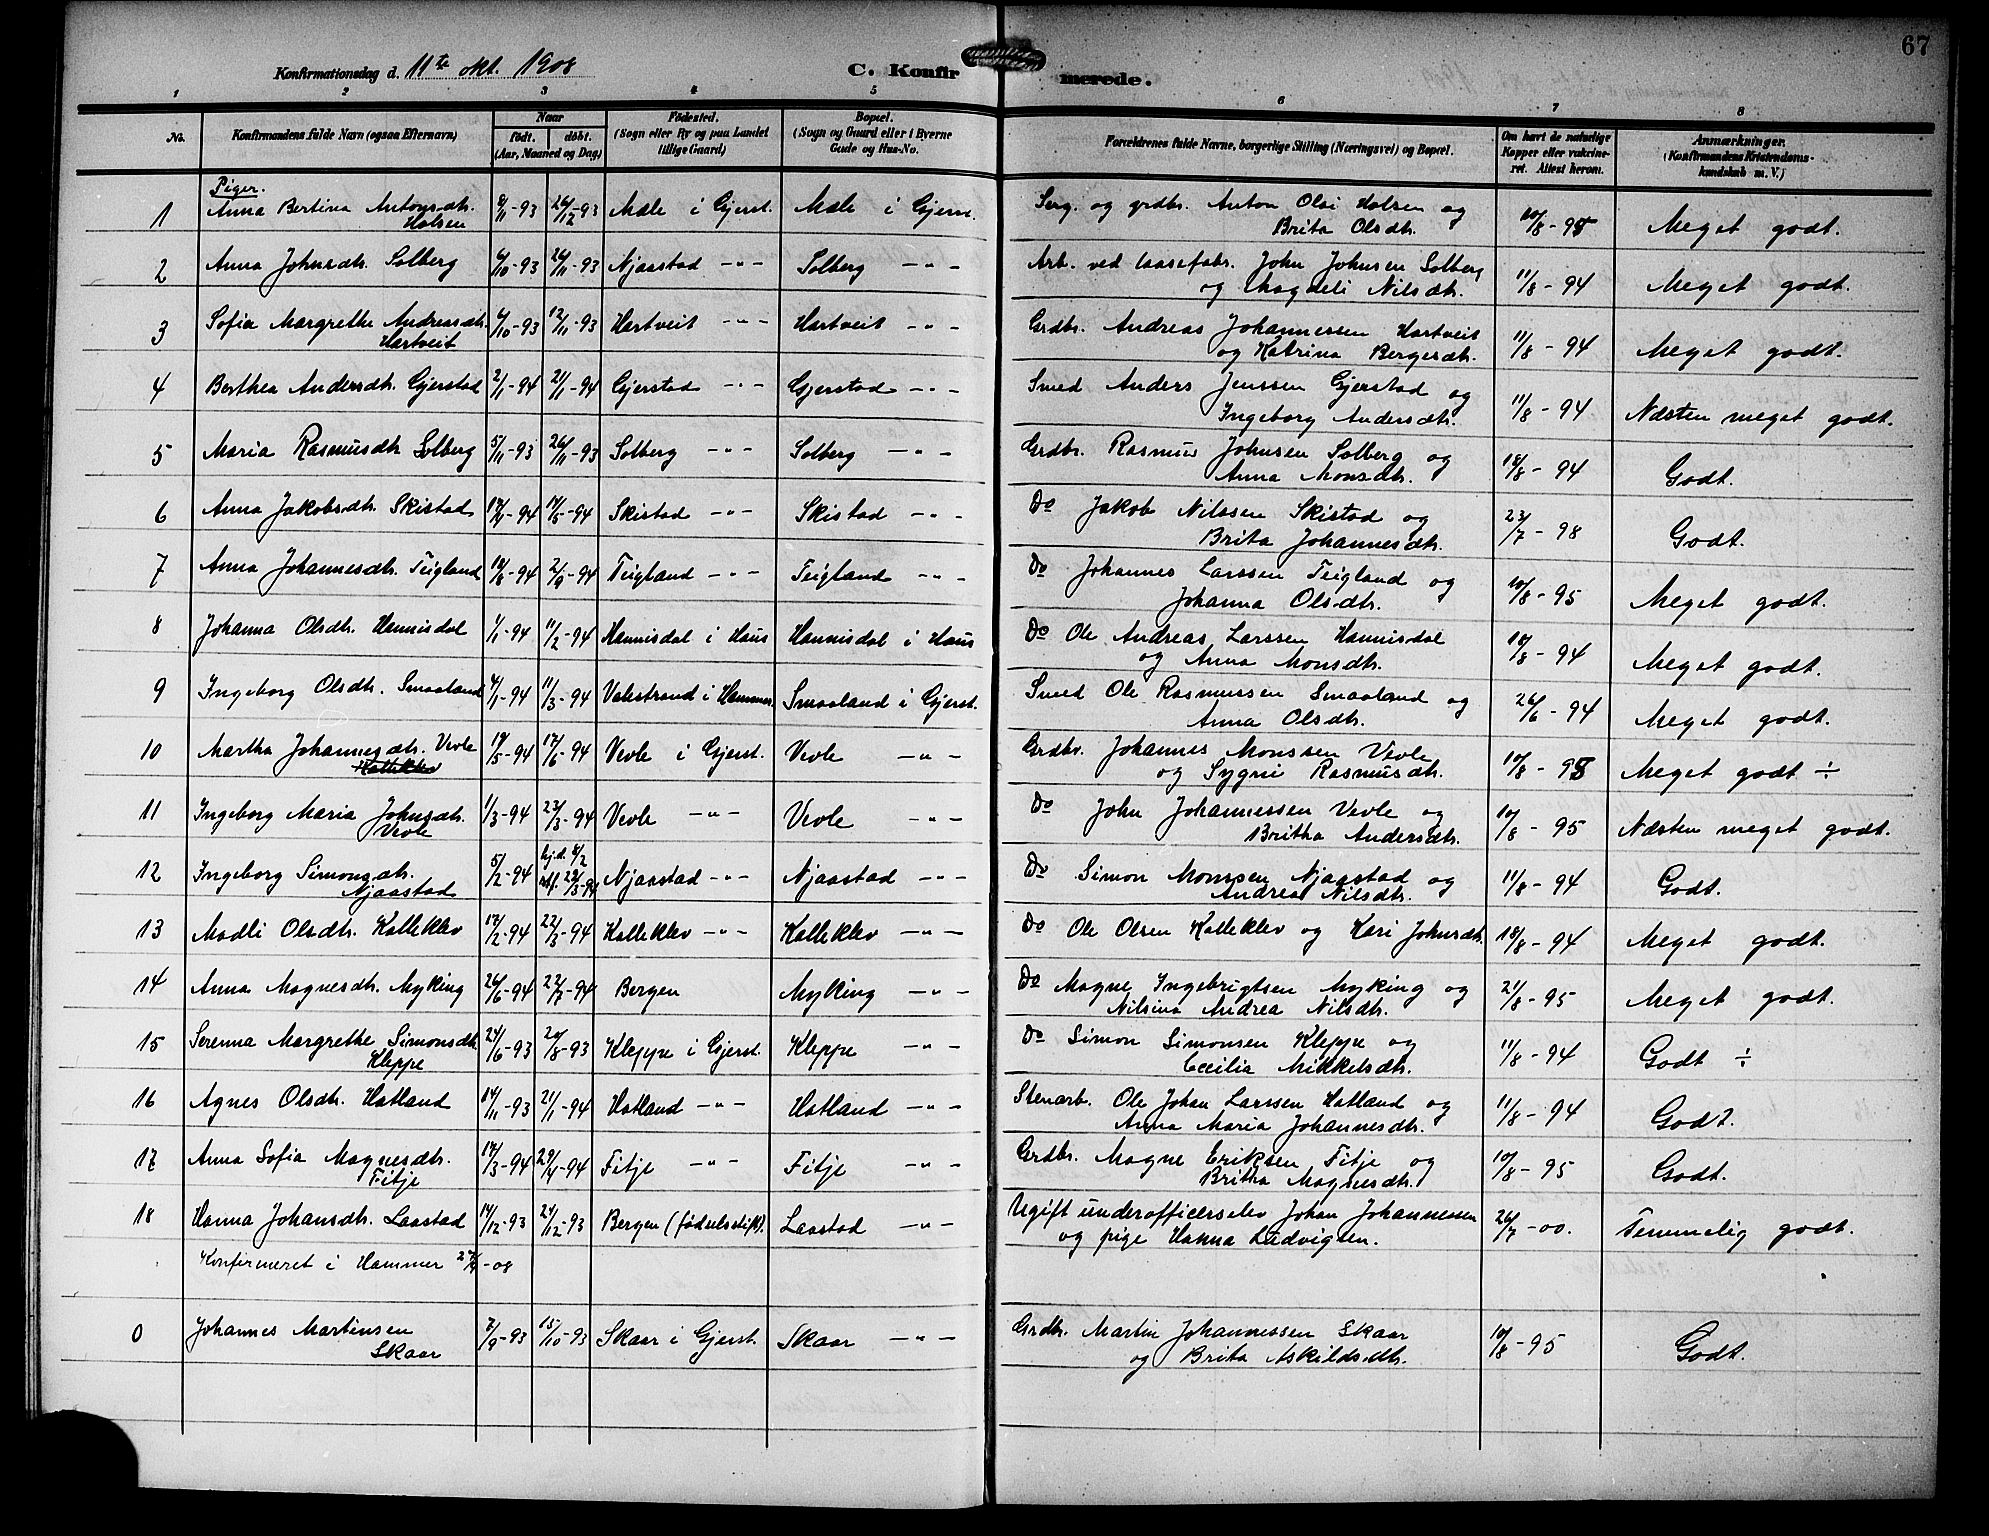 67
Konfirmationsdag d. 11te okt. 1908
C. Konfirmerede.
1 2 3 4 5 6 7 8
No. Konfirmandens fulde Navn (ogsaa Efternavn) Naar født. døbt. (Aar, Maaned og Dag) Fødested. (Sogn eller By og paa Landet tillige Gaard) Bopæl. (Sogn og Gaard eller i Byerne Gade og Hus-No. Forældrenes fulde Navne, borgerlige Stilling (Næringsvei) og Bopæl. Om havt de naturlige Kopper eller vaccineret. Attest herom. Anmærkninger. (Konfirmandens Kristendomskundskab m. V.)
Piger.
1 Anna Bertina Antonsdtr. 8/11-93 26/12-93 Mæle i Gjerst. Mæle i Gjerst. Serg. og grdbr. Anton Olai Holsen og
Holsen Brita Olsdtr. 10/8-95 Meget godt.
2 Anna Johnsdtr. Solberg 6/10-93 26/11-93 Njaastad -"- Solberg -"- Arb. ved laasefabr. John Johnsen Solberg
og Magdeli Nilsdtr. 11/8-94 Meget godt.
3 Sofia Margrethe Andreasdtr. 6/10-93 12/11-93 Hartveit -"- Hartveit -"- Grdbr. Andreas Johannessen Hartveit
Hartveit og Katrina Bergesdtr. 11/8-94 Meget godt.
4 Berthea Andersdtr. Gjerstad 2/1-94 21/1-94 Gjerstad -"- Gjerstad -"- Smed Anders Jenssen Gjerstad og
Ingeborg Andersdtr. 11/8-94 Næsten meget godt.
5 Maria Rasmusdtr Solberg 5/11-93 26/11-93 Solberg -"- Solberg -"- Grdbr. Rasmus Johnsen Solberg og
Anna Monsdtr. 18/8-94 Godt.
6 Anna Jakobsdtr. Skistad 17/4-94 17/5-94 Skistad -"- Skistad -"- Do Jakob Nilssen Skistad og
Brita Johannesdtr. 23/7-98 Godt.
7 Anna Johannesdtr. Teigland 10/8-94 2/9-94 Teigland -"- Teigland -"- Do Johannes Larssen Teigland og
Johanna Olsdtr. 10/8-95 Meget godt.
8 Johanna Olsdtr. Hannisdal 1/1-94 11/2-94 Hannisdal i Haus Hannisdal i Haus Do Ole Andreas Larssen Hannisdal
og Anna Monsdtr. 18/8-94 Meget godt.
9 Ingeborg Olsdtr. Smaaland 4/1-94 11/3-94 Valestrand i Hammer. Smaaland i Gjerst. Smed Ole Rasmussen Smaaland og
Anna Olsdtr. 26/6-94 Meget godt.
10 Martha Johannesdtr. Vevle 19/5-94 17/6-94 Vevle i Gjerst. Vevle -"- Grdbr. Johannes Monssen Vevle
Kalleklev og Sygni Rasmusdtr. 10/8-95 Meget godt ÷
11 Ingeborg Maria Johnsdtr. 1/3-94 23/3-94 Vevle -"- Vevle -"- Do John Johannessen Vevle og
Vevle Britha Andersdtr. 10/8-95 Næsten meget godt.
12 Ingeborg Simonsdtr. 5/2-94 hj.d. 8/2 stf. 23/3-94 Njaastad -"- Njaastad -"- Do Simon Monssen Njaastad og
Njaastad Andrea Nilsdtr. 11/8-94 Godt.
13 Madli Olsdtr. Kalleklev 17/2-94 22/3-94 Kalleklev -"- Kalleklev -"- Do Ole Olsen Kalleklev og Kari Johnsdtr. 18/8-94 Meget godt.
14 Anna Magnesdtr. Myking 26/6-94 22/7-94 Bergen Myking -"- Do Magne Ingebrigtsen Myking og
Nilsina Andrea Nilsdtr. 21/8-95 Meget godt.
15 Serenna Margrethe Simonsdtr. 24/6-93 20/8-93 Kleppe i Gjerst. Kleppe -"- Do Simon Simonsen Kleppe og
Kleppe Cecilia Mikkelsdtr. 11/8-94 Godt ÷
16 Agnes Olsdtr. Hatland 14/11-93 21/1-94 Hatland -"- Hatland -"- Stenarb. Ole Johan Larssen Hatland og
Anna Maria Johannesdtr. 11/8-94 Godt.
17 Anna Sofia Magnesdtr. 17/3-94 29/4-94 Fitje -"- Fitje -"- Grdbr. Magne Eriksen Fitje og
Fitje Britha Magnesdtr. 10/8-95 Godt.
18 Hanna Johansdtr. Laastad 14/12-93 24/12-93 Bergen (fødselsstift). Laastad -"- Ugift underofficerselev Johan Johannessen
og pige Hanna Ludvigsen. 26/7-00. Temmelig godt.
Konfirmeret i Hammer 27/9-08
0 Johannes Martinsen 2/9-93 15/10-93 Skaar i Gjerst. Skaar -"- Grdbr. Martin Johannessen Skaar
Skaar og Brita Askildsdtr. 10/8-95 Godt.